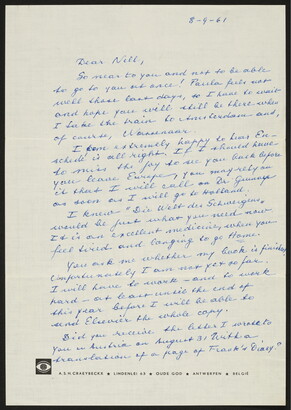 8-9-61
Dear Nell,
So near to you and not to be able
to go to you at once! Paula feels not
well these last days, so I have to wait
and hope you will still be there when
I take the train to Amsterdam and,
of course, Wassenaar.
I am extremely happy to hear En-
schedé is all right. If I should have
to miss the joy to see you back before
you leave Europe, you may rely on
it that I will call on Dr
as soon as I will go to Holland.
I knew "Die Welt des Schweigens"
would be just what you need now
It is an excellent medicine, when you
feel tired and longing to go home.
You ask me whether my book is finished
Unfortunately I am not yet so far.
I will have to work - and to work
hard - at least until the end of
this year before I will be able to
send Elsevier the whole copy.
Did you receive the letter I wrote to
you in Austria on August 31 with a
translation of a page of Frank's Diary?
A.S.H. GRAEFBECKER • LINDENLEI 65 • OUDE GOD • ANTWERPEN • BELGIË